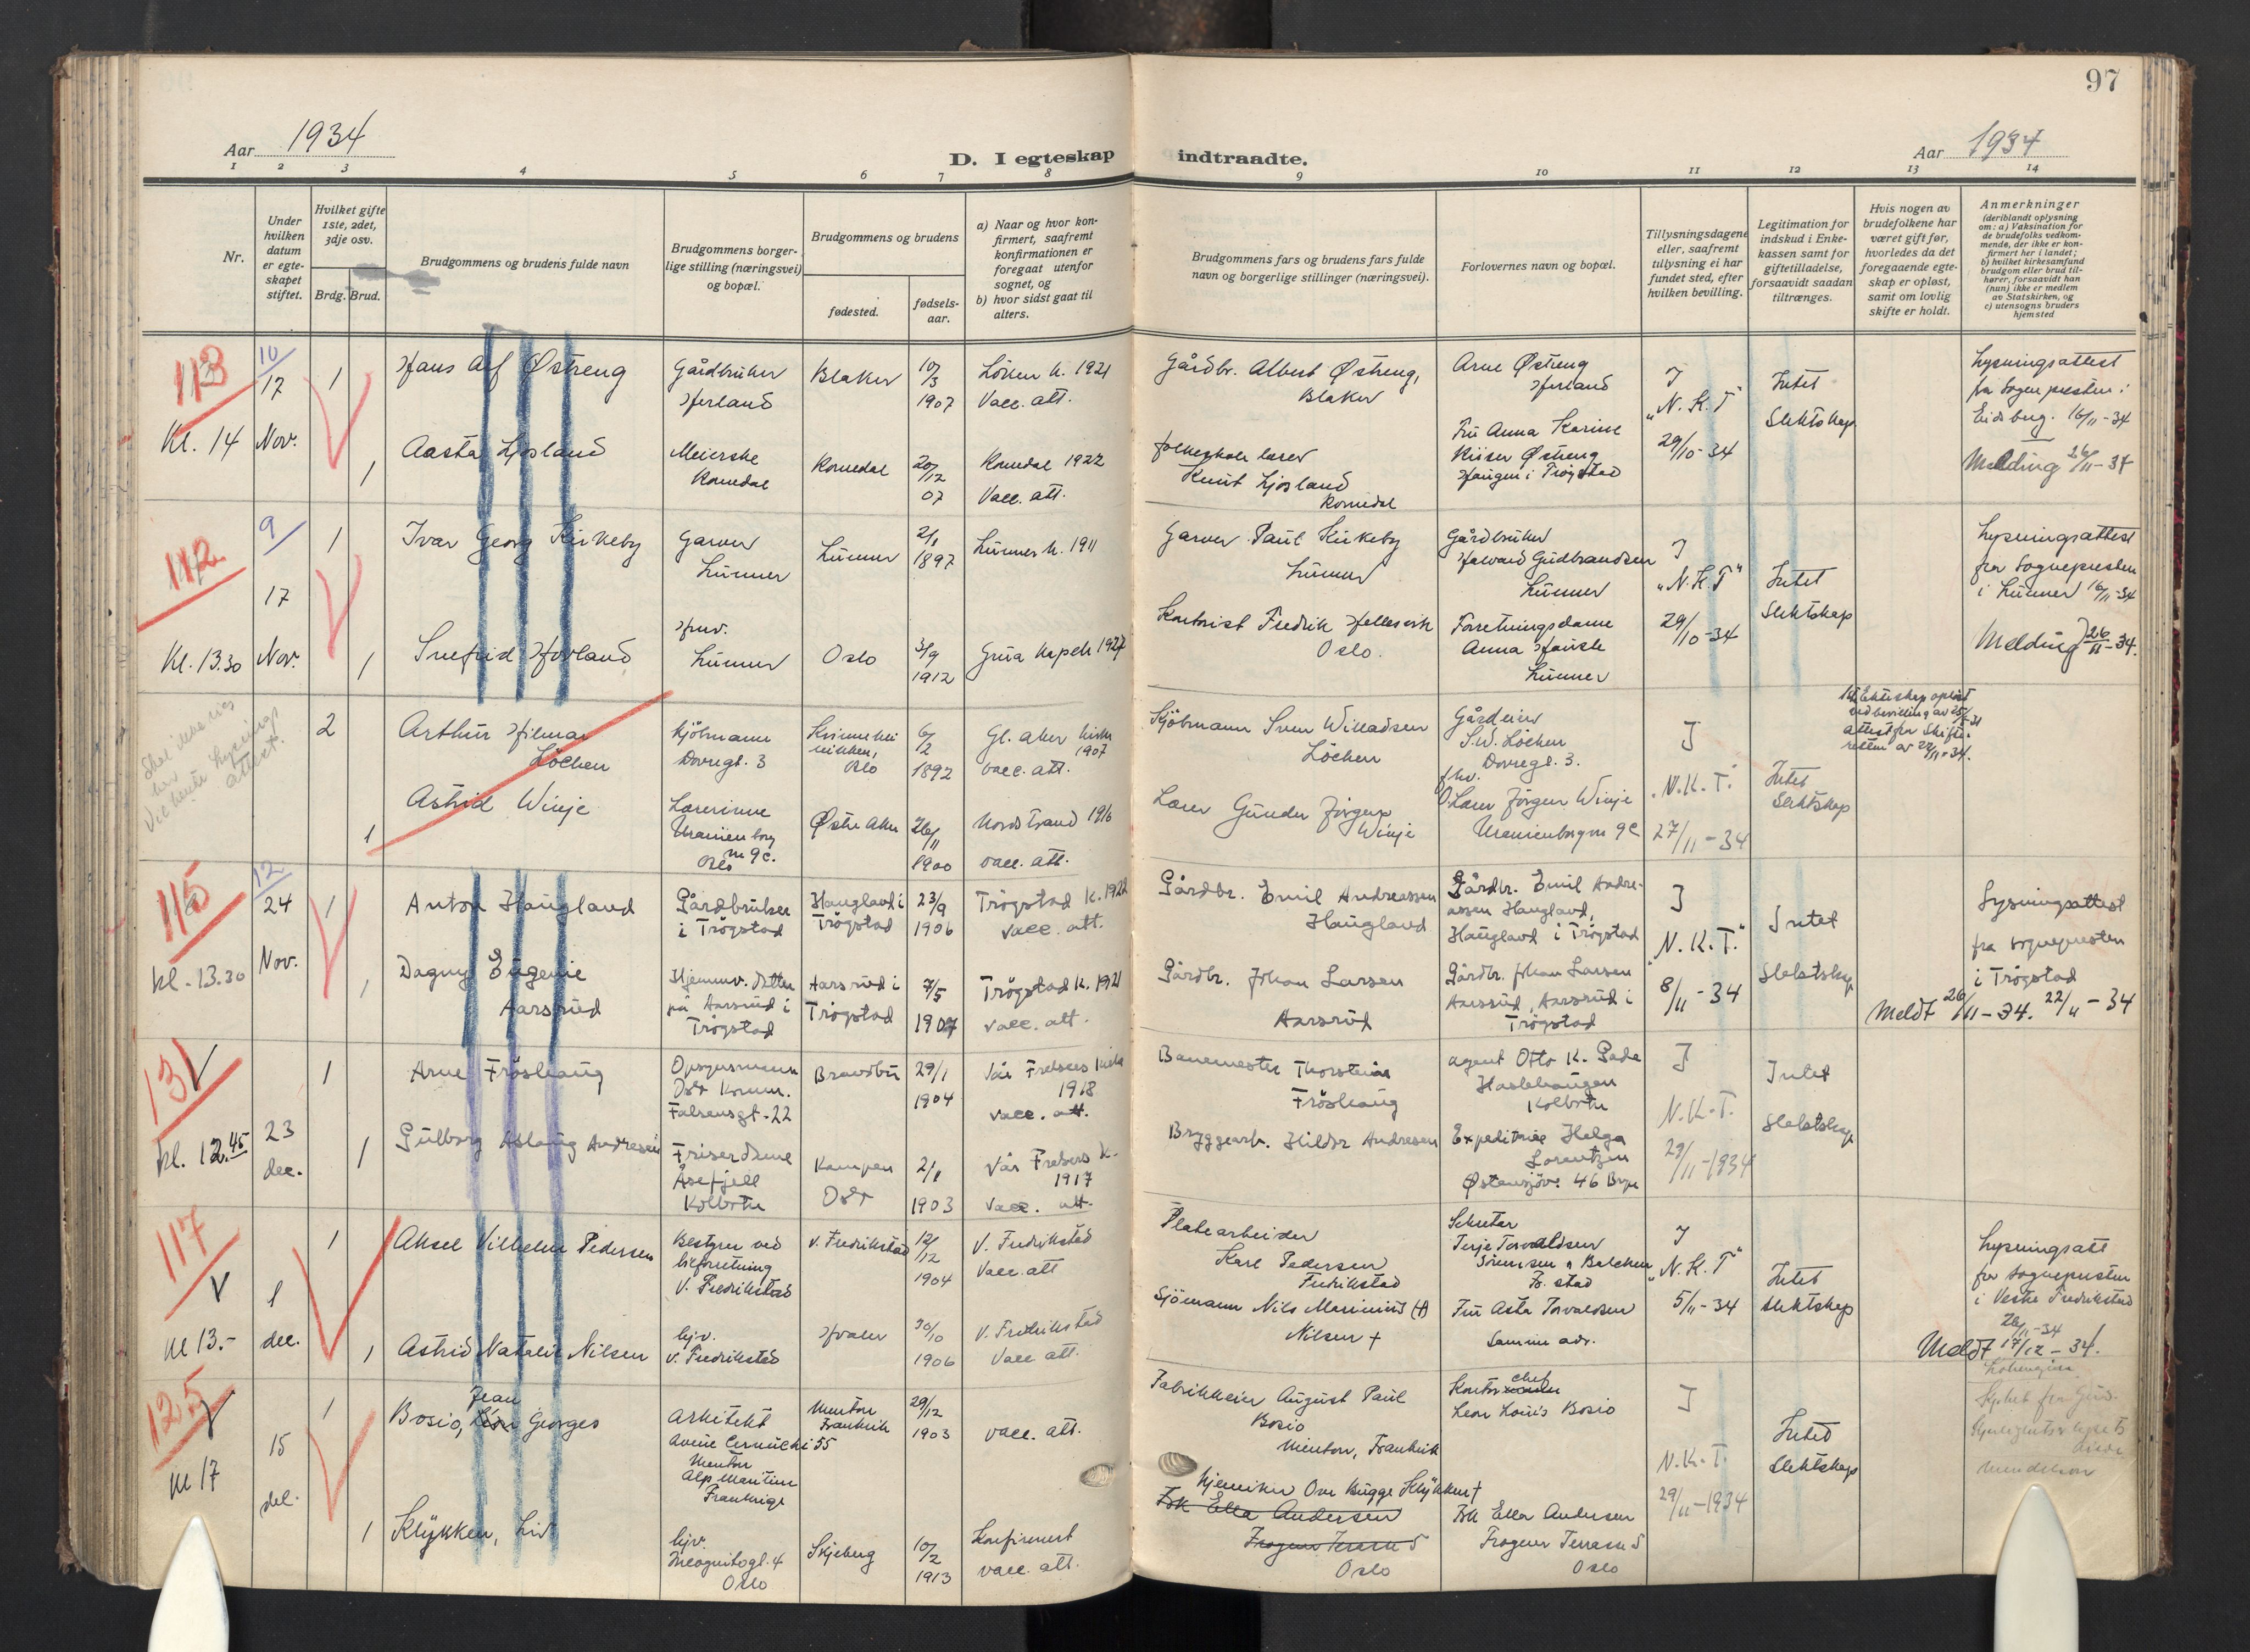 97
Aar 1934
D. I egteskap indtraadte.
Aar 1934
1 2 3 4 5 6 7 8 9 10 11 12 13 14
Nr.
Under
hvilken
datum
er egte-
skapet
stiftet.
Hvilket gifte
1ste, 2det,
3dje osv.
Brdg. Brud.
Brudgommens og brudens fulde navn
Brudgommens borger-
lige stilling (næringsvei)
og bopæl.
Brudgommens og brudens
fødested.
fødsels-
aar.
a) Naar og hvor kon-
firmert, saafremt
konfirmationen er
foregaat utenfor
sognet, og
b) hvor sidst gaat til
alters.
Brudgommens fars og brudens fars fulde
navn og borgerlige stillinger (næringsvei).
Forlovernes navn og bopæl.
Tillysningsdagene
eller, saafremt
tillysning ei har
fundet sted, efter
hvilken bevilling.
Legitimation for
indskud i Enke-
kassen samt for
giftetilladelse,
forsaavidt saadan
tiltrænges.
Hvis nogen av
brudefolkene har
været gift før,
hvorledes da det
foregaaende egte-
skap er opløst,
samt om lovlig
skifte er holdt.
Anmerkninger
(deriblandt oplysning
om: a) Vaksination for
de brudefolks vedkom-
mende, der ikke er kon-
firmert her i landet;
b) hvilket kirkesamfund
brudgom eller brud til-
hører, forsaavidt han
(hun) ikke er medlem
av Statskirken, og
c) utensogns bruders
hjemsted
113
Kl. 14
10
17
Nov.
1
1
Hans Alf Østreng
Gårdbruker
Blaker
10/3
1907
Løken k. 1921
Vacc. att.
Gårdbr. Albert Østreng,
Blaker
Arne Østreng
J
"N.K.T"
29/10-34
Intet
Slektskap
Lysningsattest
fra Sognepresten i
Eidsberg. 16/11-34
Melding 26/11-34
Aasta Ljosland
Meierske
Romedal
Romedal
20/12
07
Romedal 1922
Vacc. att.
Knut Ljosland
Romedal
Fru Anna Karine
Østreng
Haugen i Trøgstad
112
Kl. 13.30
9
17
Nov.
1
1
Ivar Georg Kirkeby
Garver
Lunner
Lunner
2/1
1897
Lunner k. 1911
Garver Paul Kirkeby
Lunner
Gårdbruker
Halvard Gudbrandsen
Lunner
J
"N.K.T"
29/10-34
Intet
Slektskap
Lysningsattest
fra Sognepresten
i Lunner 16/11-34
Melding 26/11-34.
Snefrid Hovland
Husv.
Lunner
Oslo
3/9
1912
Grua kapell 1927
Kontorist Fredrik
Oslo.
Forretningsdame
Anna
Lunner
Skal ikke vies
her
Vil hente lysnings
attest.
2
1
Arthur Hilmar
Løchen
Kjøbmann
Dovregt. 3
Oslo
6/2
1892
Gl. Aker kirke
1907
vacc. att.
Kjöbmann Sven Willadsen
Löchen
Gårdeier
S.W. Löchen
Dovregt. 3.
J
"N.K.T."
27/11-34
Intet
Slektskap
Ekteskap opløst
ved bevilling av
attest fra Skifte-
retten av 22/11-34.
Astrid Winje
Lærerinne
Uranienborg
vn 9c.
Oslo
Østre Aker
26/11
1900
Nordstrand 1916
vacc. att.
Lærer Gunder Jörgen
Winje
fhv.
Lærer Jörgen Winje
Uranienborgvn 9c
115
kl. 13.30
12
24
Nov.
1
1
Anton Haugland
Gårdbruker
i Trøgstad
Haugland i
Trøgstad
23/9
1906
Trøgstad k. 1922
vacc. att.
Gårdbr. Emil Andreassen
Haugland
Gårdbr. Emil Andre-
assen Haugland,
Haugland i Trøgstad
J
"N.K.T."
8/11-34
Intet
Slektskap
Lysningsattest
fra sognepresten
i Trøgstad
22/11-34
Meldt 26/11-34.
Dagny Eugenie
Aarsrud
Hjemmev. datter
på Aarsrud i
Trøgstad
Aarsrud i
Trøgstad
7/5
1907
Trøgstad k. 1921
vacc. att.
Gårdbr. Johan Larsen
Aarsrud
Gårdbr. Johan Larsen
Aarsrud, Aarsrud i
Trøgstad
131
V
kl. 12.45
23
dec.
1
1
Arne Frøshaug
Opsynsmann
Oslo Komm.
Falsensgt. 22
Brandbu
29/1
1904
Vår Frelsers kirke
1918
vacc. att.
Banemester Thorstein
Frøshaug
agent Otto K. Gade
Haslehaugen
Kolbotn
J
N.K.T.
29/11-1934
Intet
Slektskap
Gulborg Aslaug Andresen
Friserdame
Åsefjell
Kolbotn
Kampen
Oslo
2/1
1903
Vår Frelsers k.
1917
Vacc. att.
Bryggearb. Hildor Andresen
Expeditrice Helga
Lorentzen
Østensjøv. 46 Bryn
117
V
Kl 13.-
1
dec.
1
1
Aksel Vilhelm Pedersen
Bestyrer ved
V. Fredrikstad
V. Fredrikstad
12/12
1904
V. Fredrikstad
Vacc. att
Platearbeider
Karl Pedersen
Fredrikstad
Sekretær
Terje Torvaldsen
Sørensen & Balchen
Fr. stad
J
"N.K.T"
5/11-34
Intet
slektskap
Lysningsatt
fra sognepresten
i Vestre Fredrikstad
26/11-34
Meldt 17/12-34.
Astrid Natalie Nilsen
hjv.
V. Fredrikstad
Hvaler
30/10
1906
V. Fredrikstad
Vacc att.
Sjömann Nils Marinius (†)
Nilsen †
Fru Asta Torvaldsen
Samme adr.
125
Kl 17
15
del.
1
1
Jean
Bosio, Georges
Arkitekt
Avenue Cernuschi 55
Menton
Alp. Maritim
Frankrige
Menton
Frankrik
29/12
1903
vacc. att.
Fabrikkeier August Paul
Bosio
Menton, Frankrik
chef
Kontor
Leon Louis Bosio
J
N.K.T.
29/11-1934
Intet
Slektskap
Klykken, Liv
hjv.
Incognitogt. 4
Oslo
Skjeberg
10/2
1913
Konfirmert
vacc. att.
Kjemiker Ove Bugge Klykken †
Frk Ella Andersen
Frogner Terasse 5
Oslo
Frk Ella Andersen
Frogner Terrasse 5
Oslo